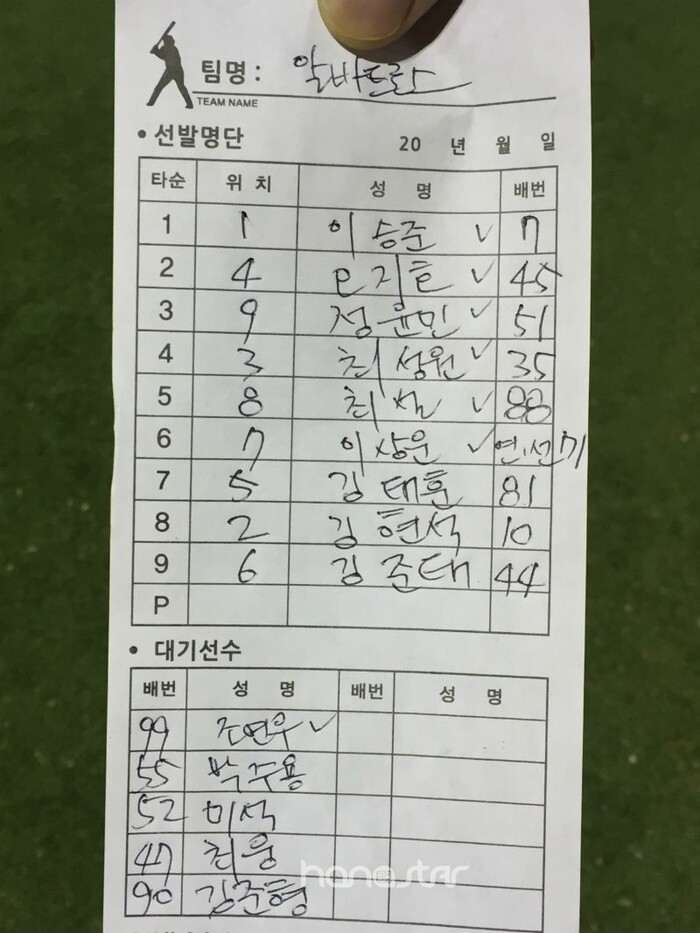 팀명 : 알바트로스
TEAM NAME
• 선발명단 20 년 월 일
타순 위 치 성 명 배번
1 1 이승준 ✓ 7
2 4 오지호 ✓ 45
3 9 정윤민 ✓ 51
4 3 최성원 ✓ 35
5 8 최 ✓ 88
6 7 이상운 ✓
7 5 김태훈 81
8 2 김현석 10
9 6 김준태 44
P
• 대기선수
배번 성 명 배번 성 명
99 조연우 ✓
55 박주용
52 이석
47 최웅
90 김준형
hanastar